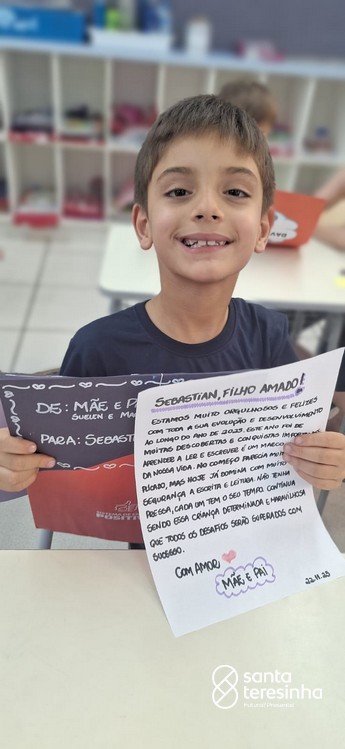 DE: MÃE E
SUELEN E
PARA: SEBAST
POSITIV
SEBASTIAN, FILHO AMADO!
ESTAMOS MUITO ORGULHOSOS E FELIZES
COM TODA A SUA EVOLUÇÃO E DESENVOLVIMENTO
AO LONGO DO ANO DE 2023. ESTE ANO FOI DE
MUITAS DESCOBERTAS E CONQUISTAS
APRENDER A LER E ESCREVER É UM MARCO
DA NOSSA VIDA. NO COMEÇO PARECIA MUITO
MAS HOJE JÁ DOMINA COM MUITA
SEGURANÇA A ESCRITA E LEITURA. NÃO TENHA
PRESSA, CADA UM TEM O SEU TEMPO. CONTINUA
SENDO ESSA CRIANÇA DETERMINADA E MARAVILHOSA
QUE TODOS OS DESAFIOS SERÃO SUPERADOS COM
SUCESSO.
COM AMOR
MÃE E PAI
22.11.23
santa
teresinha